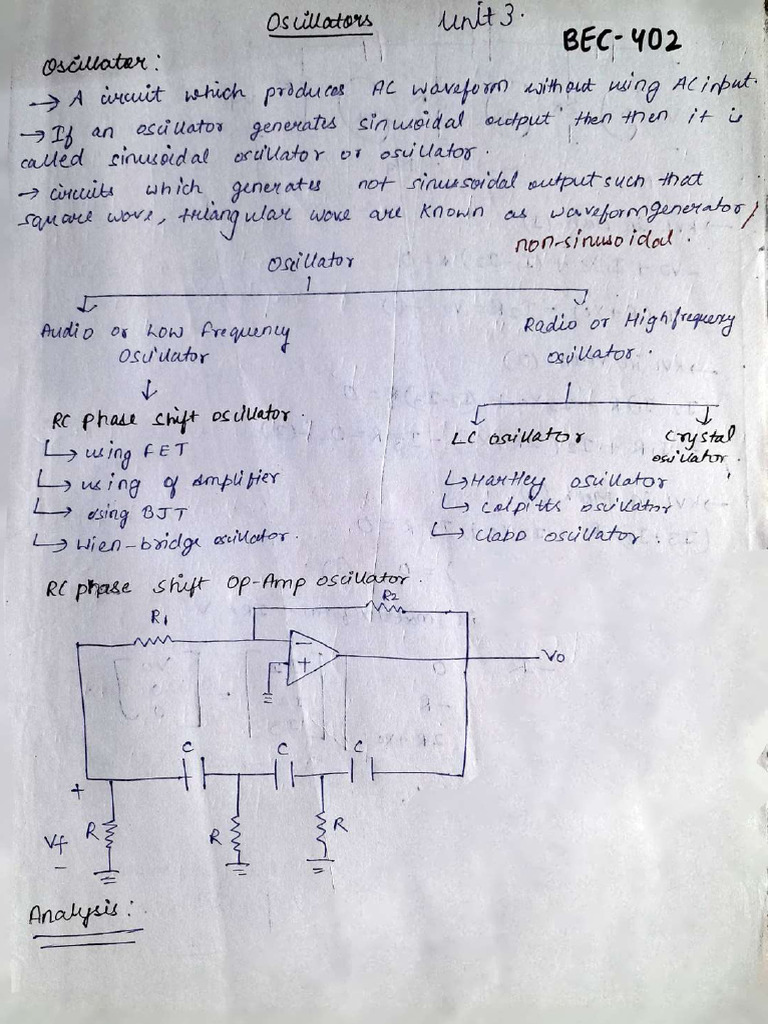 Oscillators Unit 3.
BEC-402
Oscillator:
→ A circuit which produces AC waveform without using AC input.
→ If an oscillator generates sinusoidal output then then it is
called sinusoidal oscillator or oscillator.
→ circuits which generates not sinusoidal output such that
square wave, triangular wave are known as waveform generator/
non-sinusoidal.
Oscillator
Audio or Low frequency
Oscillator
Radio or High frequency
oscillator.
RC phase shift oscillator.
↳ using FET
↳ using op amplifier
↳ using BJT
↳ Wien-bridge oscillator.
LC oscillator
Crystal
oscillator.
↳ Hartley oscillator
↳ Colpitts oscillator
↳ Clapp oscillator.
RC phase shift Op-Amp oscillator.
R2
R1
−
+
Vo
C C C
+
Vf
−
R R R
Analysis: